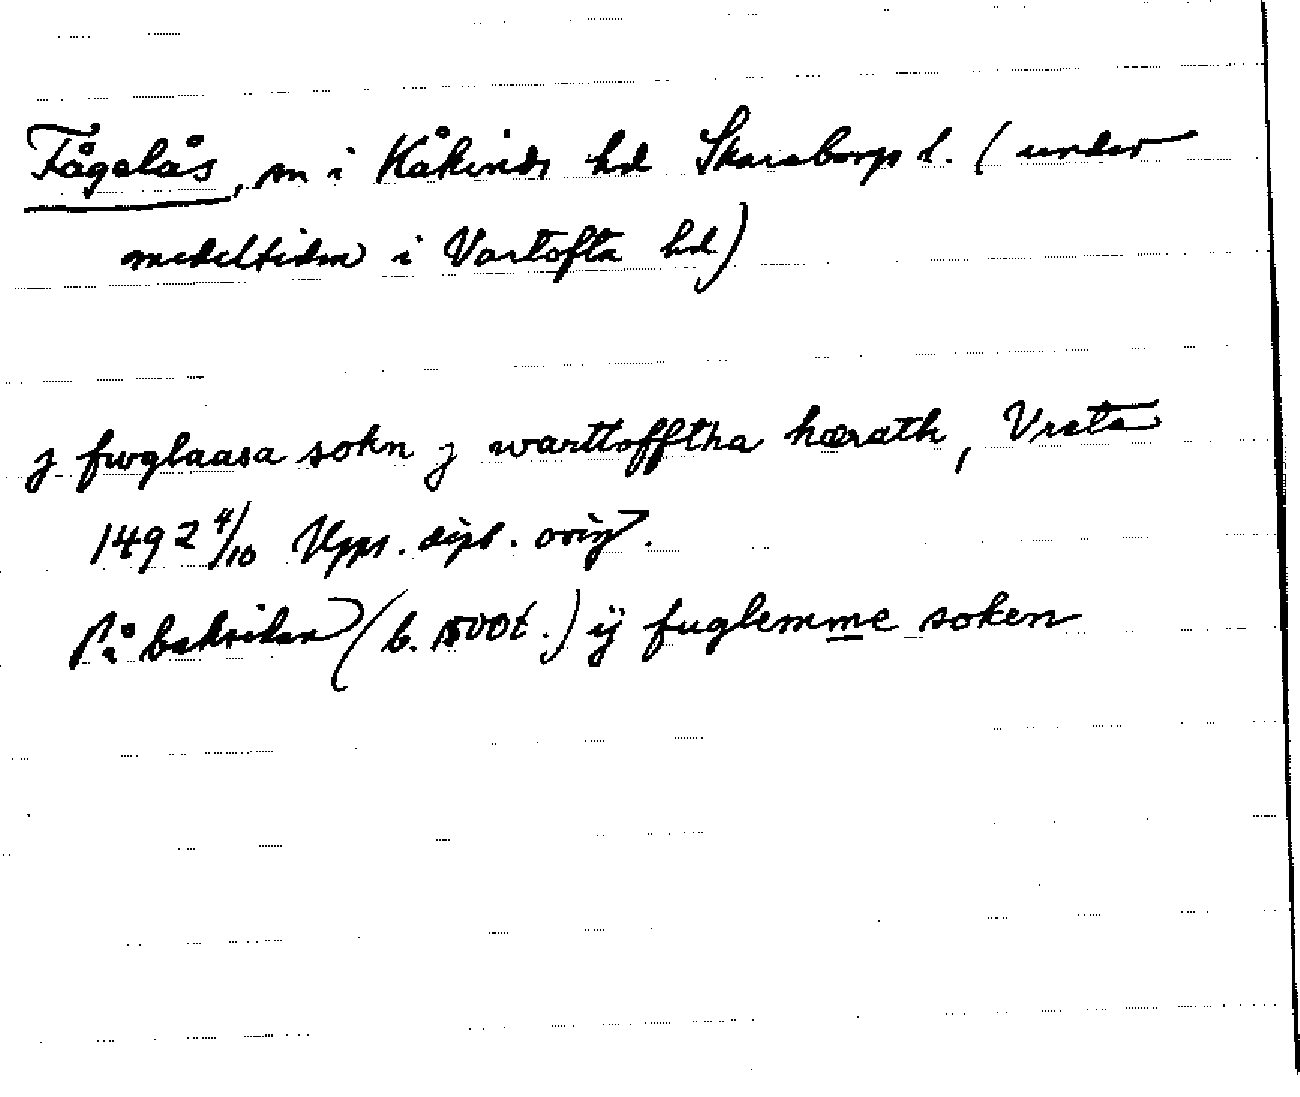 Fågelås, sn i Kåkinds hd Skaraborgs l. (under
medeltiden i Vartofta hd)
j fwglaasa sokn j warttofftha hærath, Vreta
1492 4/10 Upps. dipl. orig.
På baksidan (b. 1500t.) ij fuglemme soken